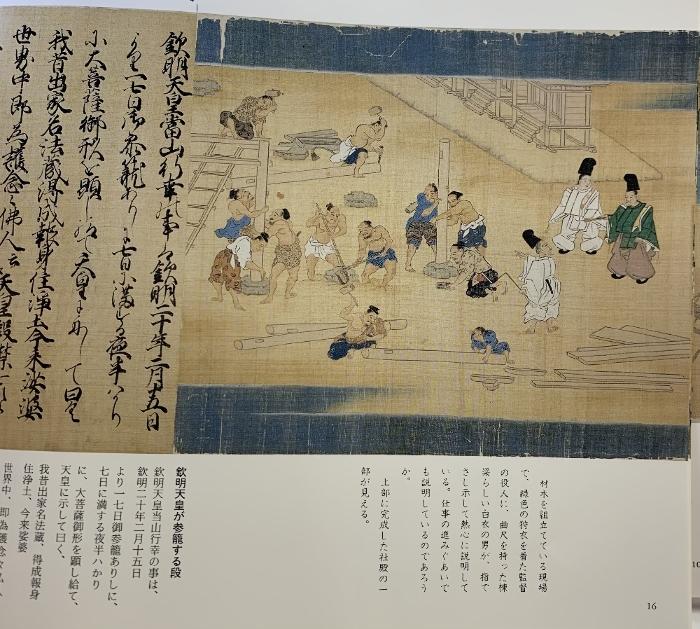 欽明天皇當山行幸の事ハ欽明二十年二月十五日
より一七日御参籠ありしに七日に満する夜半ハかり
に大菩薩御形を顕し給て天皇に示して曰く
我昔出家名法蔵得成報身住浄土今来娑婆
世界中即為護念
材木を組立てている現場
で、緑色の狩衣を着た監督
の役人に、曲尺を持った棟
梁らしい白衣の男が、指で
さし示して熱心に説明して
いる。仕事の進みぐあいで
も説明しているのであろう
か。
上部に完成した社殿の一
部が見える。
欽明天皇が参籠する段
欽明天皇当山行幸の事は、
欽明二十年二月十五日
より一七日御参籠ありしに、
七日に満する夜半ハかり
に、大菩薩御形を顕し給て、
天皇に示して曰く、
我昔出家名法蔵、得成報身
住浄土、今来娑婆
世界中、即為護念
16